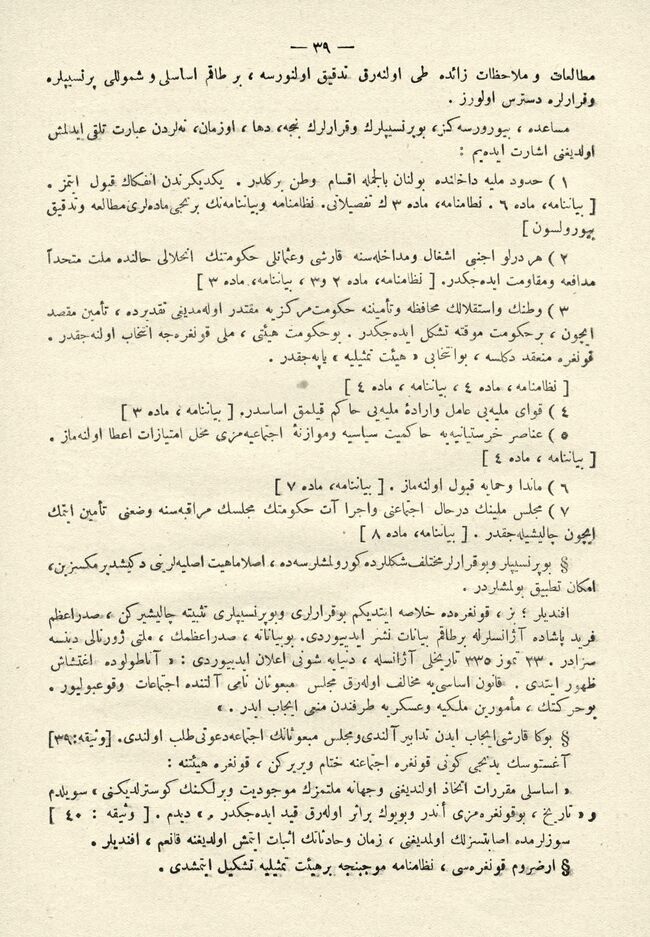 — ٣٩ —
مطالعات و ملاحظات زائده طی اولنه‌رق تدقیق اولنورسه ، بر طاقم اساسلی و شموللی پرنسیپلره
وقرارلره دسترس اولورز .
مساعده ، بیورورسه‌كز ، بوپرنسیپلرك وقرارلرك بنجه ، دها ، اوزمان ، نه‌لردن عبارت تلقی ایدلمش
اولدیغنی اشارت ایده‌یم :
١ ) حدود ملیه داخلنده بولنان بالجمله اقسام وطن بركلدر . یكدیكرندن انفكاك قبول ایتمز .
[ بیاننامه ، ماده ٦ . نظامنامه ، ماده ٣ ك تفصیلاتی . نظامنامه وبیاننامه‌نك برنجی ماده‌لری مطالعه وتدقیق
بیورولسون ]
٢ ) هر درلو اجنبی اشغال ومداخله‌سنه قارشی وعثمانلی حكومتنك انحلالی حالنده ملت متحداً
مدافعه ومقاومت ایده‌جكدر . [ نظامنامه ، ماده ٢ و٣ ، بیاننامه ، ماده ٣ ]
٣ ) وطنك واستقلالك محافظه وتأمیننه حكومت مركزیه مقتدر اوله‌مدیغی تقدیرده ، تأمین مقصد
ایچون ، بر حكومت موقته تشكل ایده‌جكدر . بوحكومت هیئتی ، ملی قونغره‌جه انتخاب اولنه‌جقدر .
قونغره منعقد دكلسه ، بوانتخابی « هیئت تمثیلیه » یاپه‌جقدر .
[ نظامنامه ، ماده ٤ ، بیاننامه ، ماده ٤ ]
٤ ) قوای ملیه‌یی عامل وارادهٔ ملیه‌یی حاكم قیلمق اساسدر . [ بیاننامه ، ماده ٣ ]
٥ ) عناصر خرستیانیه‌یه حاكمیت سیاسیه وموازنهٔ اجتماعیه‌مزی مخل امتیازات اعطا اولنه‌ماز .
[ بیاننامه ، ماده ٤ ]
٦ ) ماندا وحمایه قبول اولنه‌ماز . [ بیاننامه ، ماده ٧ ]
٧ ) مجلس ملینك درحال اجتماعنی واجرا آت حكومتك مجلسك مراقبه‌سنه وضعنی تأمین ایتمك
ایچون چالیشیله‌جقدر . [ بیاننامه ، ماده ٨ ]
§ بوپرنسیپلر وبوقرارلر مختلف شكللرده كورولمشلرسه‌ده ، اصلا ماهیت اصلیه‌لرینی دكیشدیرمكسزین ،
امكان تطبیق بولمشلردر .
افندیلر ؛ بز ، قونغره‌ده خلاصه ایتدیكم بوقرارلری وبوپرنسیپلری تثبیته چالیشیركن ، صدراعظم
فرید پاشاده آژانسلرله برطاقم بیانات نشر ایدییوردی . بوبیاناته ، صدراعظمك ، ملتی ژورنالی دینسه
سزادر . ٢٣ تموز ٣٣٥ تاریخلی آژانسله ، دنیایه شونی اعلان ایدییوردی : « آناطولوده اغتشاش
ظهور ایتدی . قانون اساسی‌یه مخالف اوله‌رق مجلس مبعوثان نامی آلتنده اجتماعات وقوعبولیور .
بوحركتك ، مأمورین ملكیه وعسكریه طرفندن منعی ایجاب ایدر . »
§ بوكا قارشی ایجاب ایدن تدابیر آلندی ومجلس مبعوثانك اجتماعه دعوتی طلب اولندی . [ وثیقه : ٣٩ ]
آغستوسك یدنجی كونی قونغره اجتماعنه ختام ویریركن ، قونغره هیئتنه :
« اساسلی مقررات اتخاذ اولندیغنی وجهانه ملتمزك موجودیت وبرلكنك كوسترلدیكنی » سویلدم
و « تاریخ ، بوقونغره‌مزی أندر وبویوك براثر اوله‌رق قید ایده‌جكدر . » دیدم . [ وثیقه : ٤٠ ]
سوزلرمده اصابتسزلك اولمدیغنی ، زمان وحادثاتك اثبات ایتمش اولدیغنه قانعم ، افندیلر .
§ ارضروم قونغره‌سی ، نظامنامه موجبنجه بر هیئت تمثیلیه تشكیل ایتمشدی .